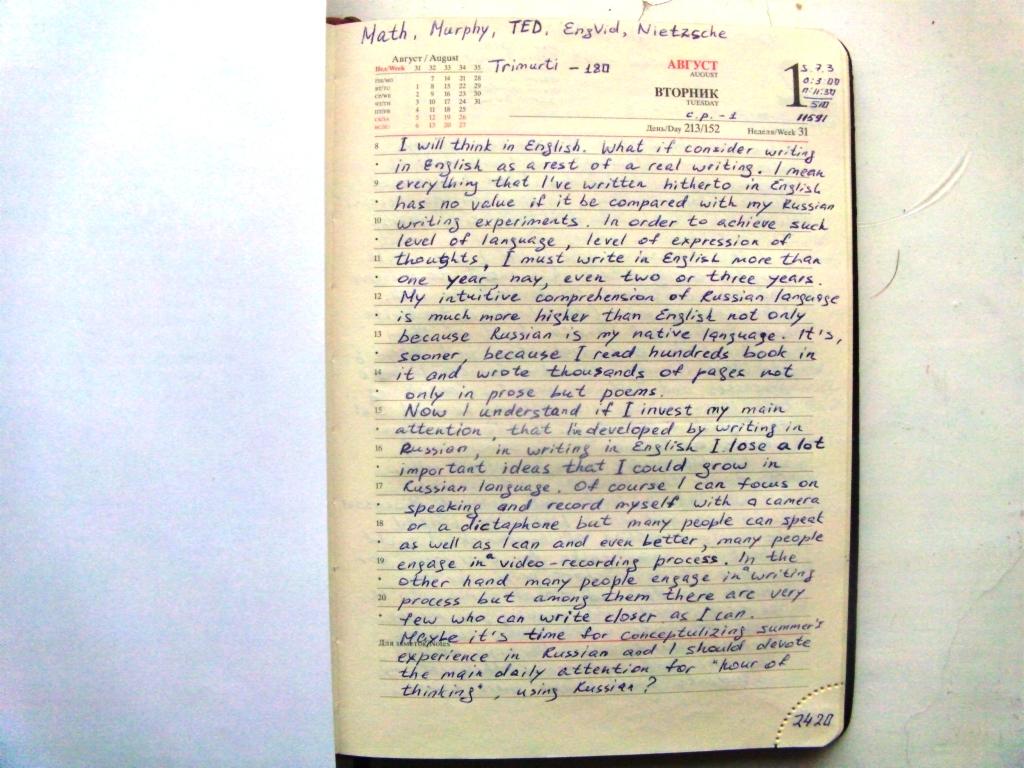 Math, Murphy, TED, EngVid, Nietzsche
Август / August
Нед/Week 31 32 33 34 35
ПН/MO 7 14 21 28
ВТ/TU 1 8 15 22 29
СР/WE 2 9 16 23 30
ЧТ/TH 3 10 17 24 31
ПТ/FR 4 11 18 25
СБ/SA 5 12 19 26
ВС/SU 6 13 20 27
Trimurti - 180
АВГУСТ
AUGUST
ВТОРНИК
TUESDAY
1
S. 7.3
0:3:00
n:11:30
510
11591
c.p. - 1
День/Day 213/152 Неделя/Week 31
8 I will think in English. What if consider writing
in English as a rest of a real writing. I mean
9 everything that I've written hitherto in English
has no value if it be compared with my Russian
10 writing experiments. In order to achieve such
level of language, level of expression of
11 thoughts, I must write in English more than
one year, nay, even two or three years.
12 My intuitive comprehension of Russian language
is much more higher than English not only
13 because Russian is my native language. It's,
sooner, because I read hundreds book in
14 it and wrote thousands of pages not
only in prose but poems.
15 Now I understand if I invest my main
attention, that I'm developed by writing in
16 Russian, in writing in English I lose a lot
important ideas that I could grow in
17 Russian language. Of course I can focus on
speaking and record myself with a camera
18 or a dictaphone but many people can speat
as well as I can and even better, many people
19 engage in a video-recording process. In the
other hand many people engage in a writing
20 process but among them there are very
few who can write closer as I can.
Для заметок/Notes
Maybe it's time for conceptulizing summer's
experience in Russian and I should devote
the main daily attention for "hour of
thinking", using Russian?
2420